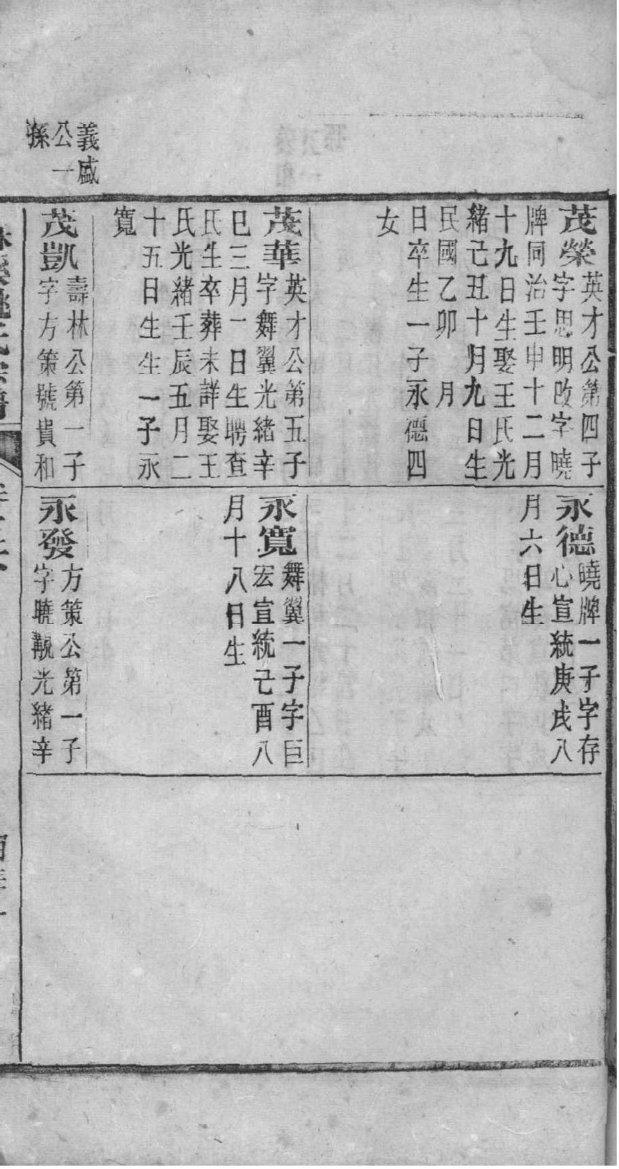 茂榮
英才公第四子
字思明改字曉
牌同治壬申十二月
十九日生娶王氏光
緒己丑十月九日生
民國乙卯　月
日卒生一子永德四
女
茂華
英才公第五子
字舞翼光緒辛
巳三月一日生聘查
氏生卒葬未詳娶王
氏光緒壬辰五月二
十五日生生一子永
寬
義盛
公一
孫
茂凱
壽林公第一子
字方策號貴和
永德
曉牌一子字存
心宣統庚戌八
月六日生
永寬
舞翼一子字巨
宏宣統己酉八
月十八日生
永發
方策公第一子
字曉觀光緒辛